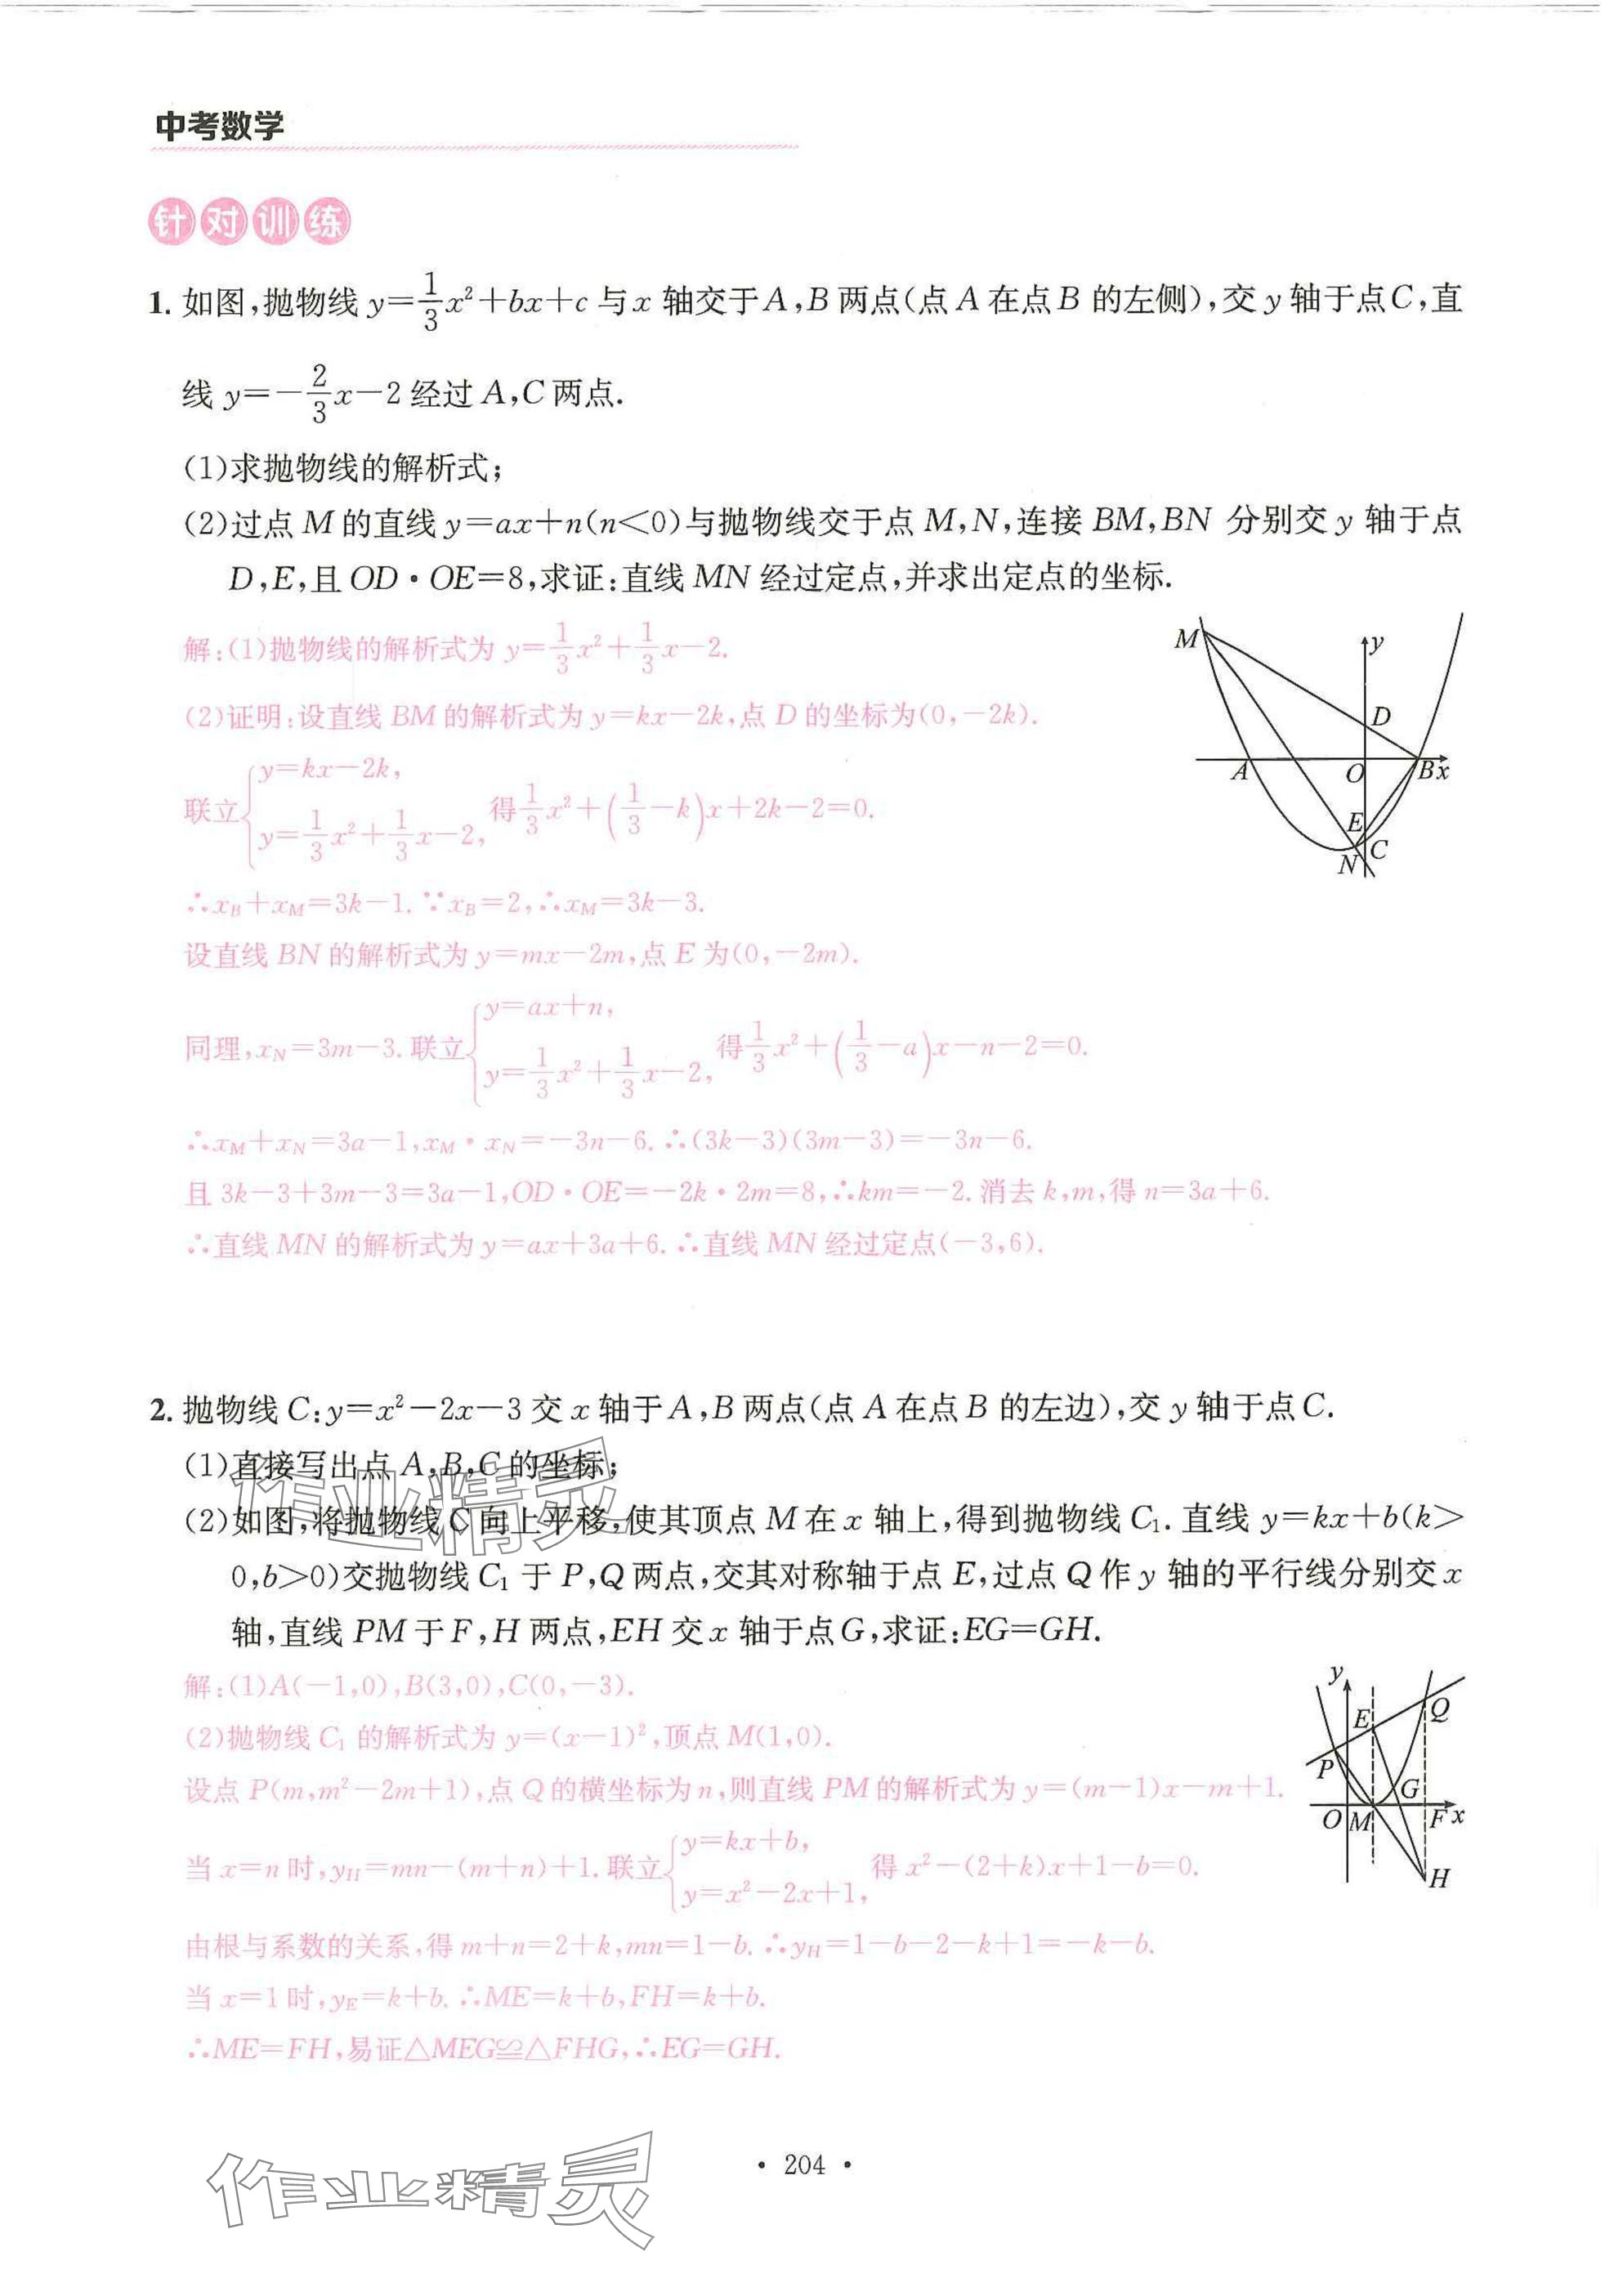 中考数学
针对训练
1. 如图,抛物线 y=1/3x²+bx+c 与 x 轴交于 A,B 两点(点 A 在点 B 的左侧),交 y 轴于点 C,直
线 y=-2/3x-2 经过 A,C 两点.
(1)求抛物线的解析式;
(2)过点 M 的直线 y=ax+n(n<0)与抛物线交于点 M,N,连接 BM,BN 分别交 y 轴于点
D,E,且 OD·OE=8,求证:直线 MN 经过定点,并求出定点的坐标.
解:(1)抛物线的解析式为 y=1/3x²+1/3x-2.
(2)证明:设直线 BM 的解析式为 y=kx-2k,点 D 的坐标为(0,-2k).
联立{y=kx-2k, y=1/3x²+1/3x-2, 得1/3x²+(1/3-k)x+2k-2=0.
∴x_B+x_M=3k-1.∵x_B=2,∴x_M=3k-3.
设直线 BN 的解析式为 y=mx-2m,点 E 为(0,-2m).
同理,x_N=3m-3.联立{y=ax+n, y=1/3x²+1/3x-2, 得1/3x²+(1/3-a)x-n-2=0.
∴x_M+x_N=3a-1,x_M·x_N=-3n-6.∴(3k-3)(3m-3)=-3n-6.
且 3k-3+3m-3=3a-1,OD·OE=-2k·2m=8,∴km=-2.消去 k,m,得 n=3a+6.
∴直线 MN 的解析式为 y=ax+3a+6.∴直线 MN 经过定点(-3,6).
M
y
D
A
O
B
x
E
C
N
2. 抛物线 C:y=x²-2x-3 交 x 轴于 A,B 两点(点 A 在点 B 的左边),交 y 轴于点 C.
(1)直接写出点 A,B,C 的坐标;
(2)如图,将抛物线 C 向上平移,使其顶点 M 在 x 轴上,得到抛物线 C₁.直线 y=kx+b(k>
0,b>0)交抛物线 C₁ 于 P,Q 两点,交其对称轴于点 E,过点 Q 作 y 轴的平行线分别交 x
轴,直线 PM 于 F,H 两点,EH 交 x 轴于点 G,求证:EG=GH.
解:(1)A(-1,0),B(3,0),C(0,-3).
(2)抛物线 C₁ 的解析式为 y=(x-1)²,顶点 M(1,0).
设点 P(m,m²-2m+1),点 Q 的横坐标为 n,则直线 PM 的解析式为 y=(m-1)x-m+1.
当 x=n 时,y_H=mn-(m+n)+1.联立{y=kx+b, y=x²-2x+1, 得 x²-(2+k)x+1-b=0.
由根与系数的关系,得 m+n=2+k,mn=1-b.∴y_H=1-b-2-k+1=-k-b.
当 x=1 时,y_E=k+b.∴ME=k+b,FH=k+b.
∴ME=FH,易证△MEG≌△FHG,∴EG=GH.
y
E
Q
P
G
O
M
F
x
H
作业精灵
作业精灵
· 204 ·